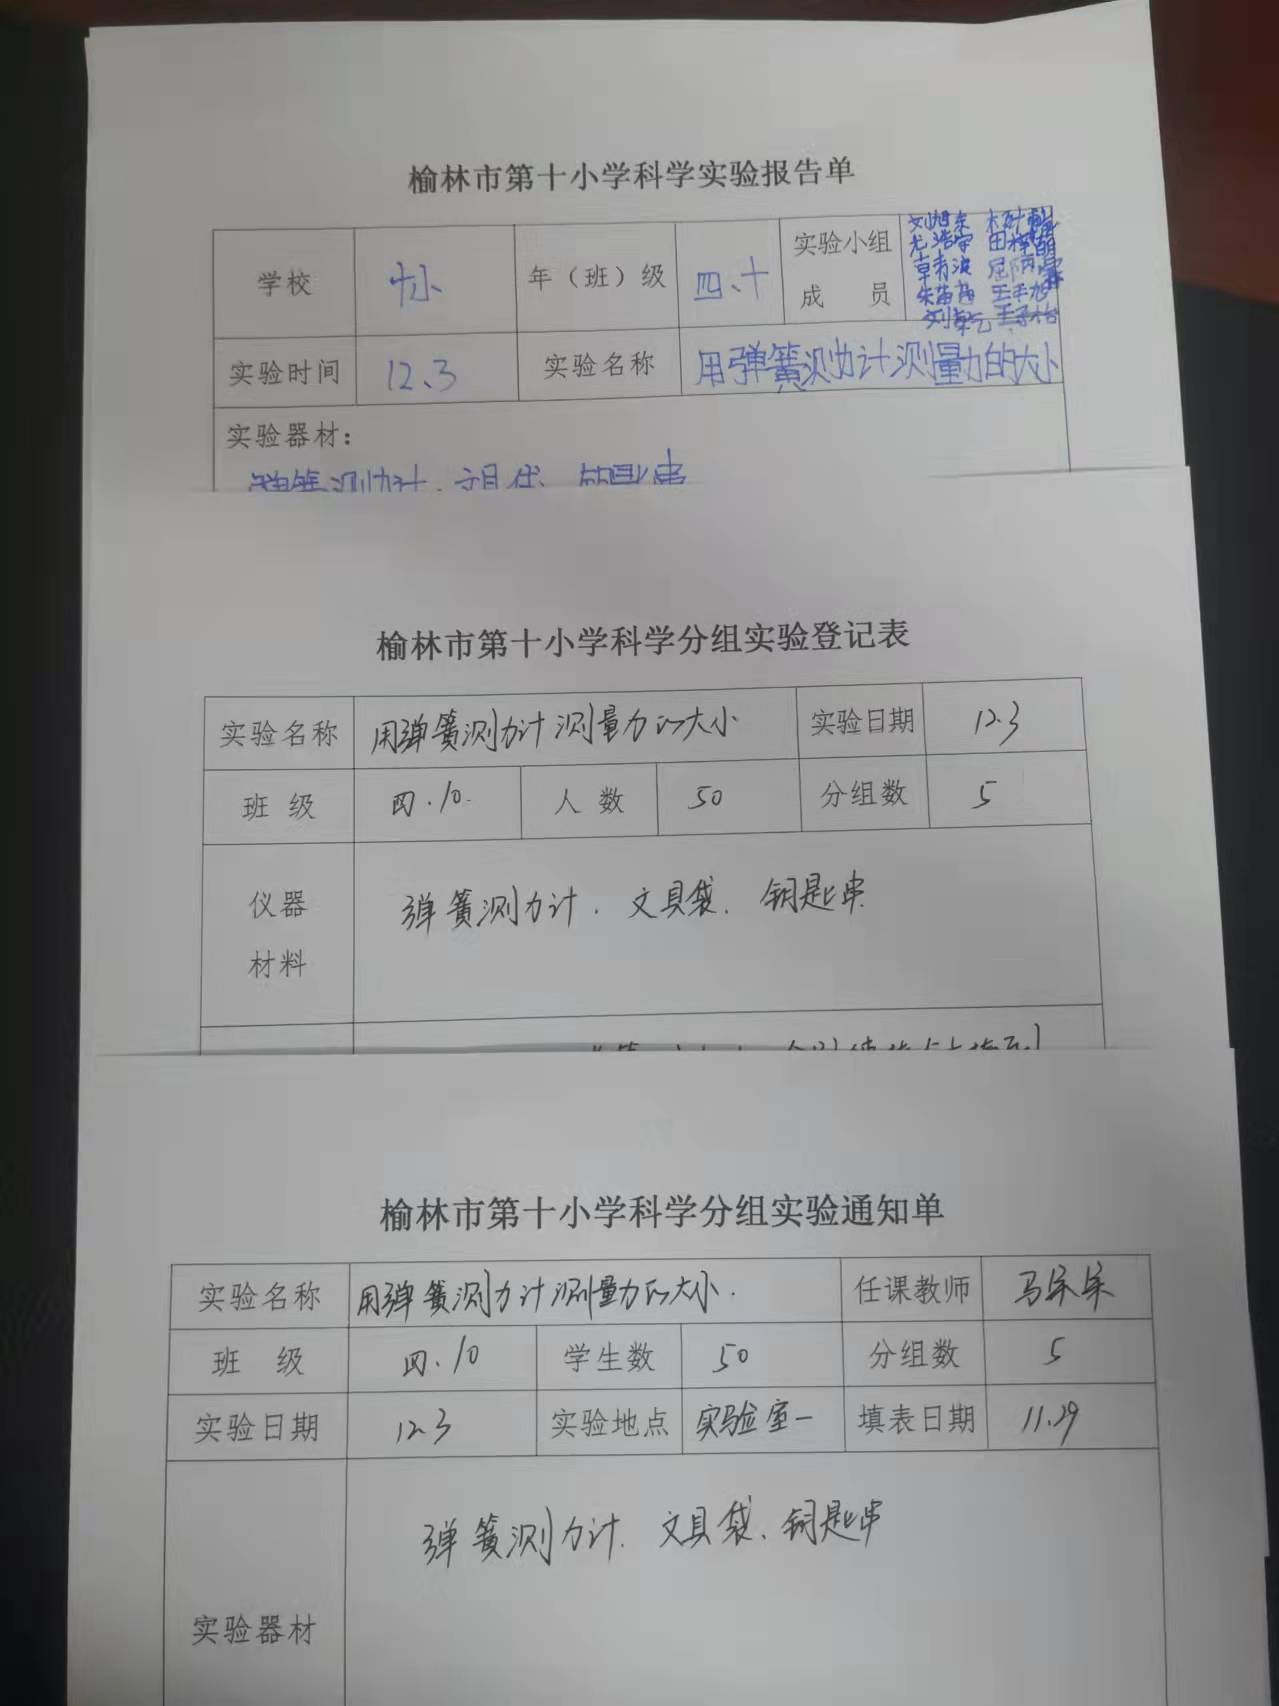 榆林市第十小学科学实验报告单
学校 十小 年（班）级 四、十 实验小组成员 刘旭东
实验时间 12、3 实验名称 用弹簧测力计测量力的大小
实验器材：
弹簧测力计、文具袋、钥匙串
榆林市第十小学科学分组实验登记表
实验名称 用弹簧测力计测量力的大小 实验日期 12.3
班 级 四.10. 人 数 50 分组数 5
仪器
材料
弹簧测力计.文具袋.钥匙串
榆林市第十小学科学分组实验通知单
实验名称 用弹簧测力计测量力的大小. 任课教师
班 级 四.10 学生数 50 分组数 5
实验日期 12.3 实验地点 实验室一 填表日期 11.29
实验器材
弹簧测力计.文具袋、钥匙串